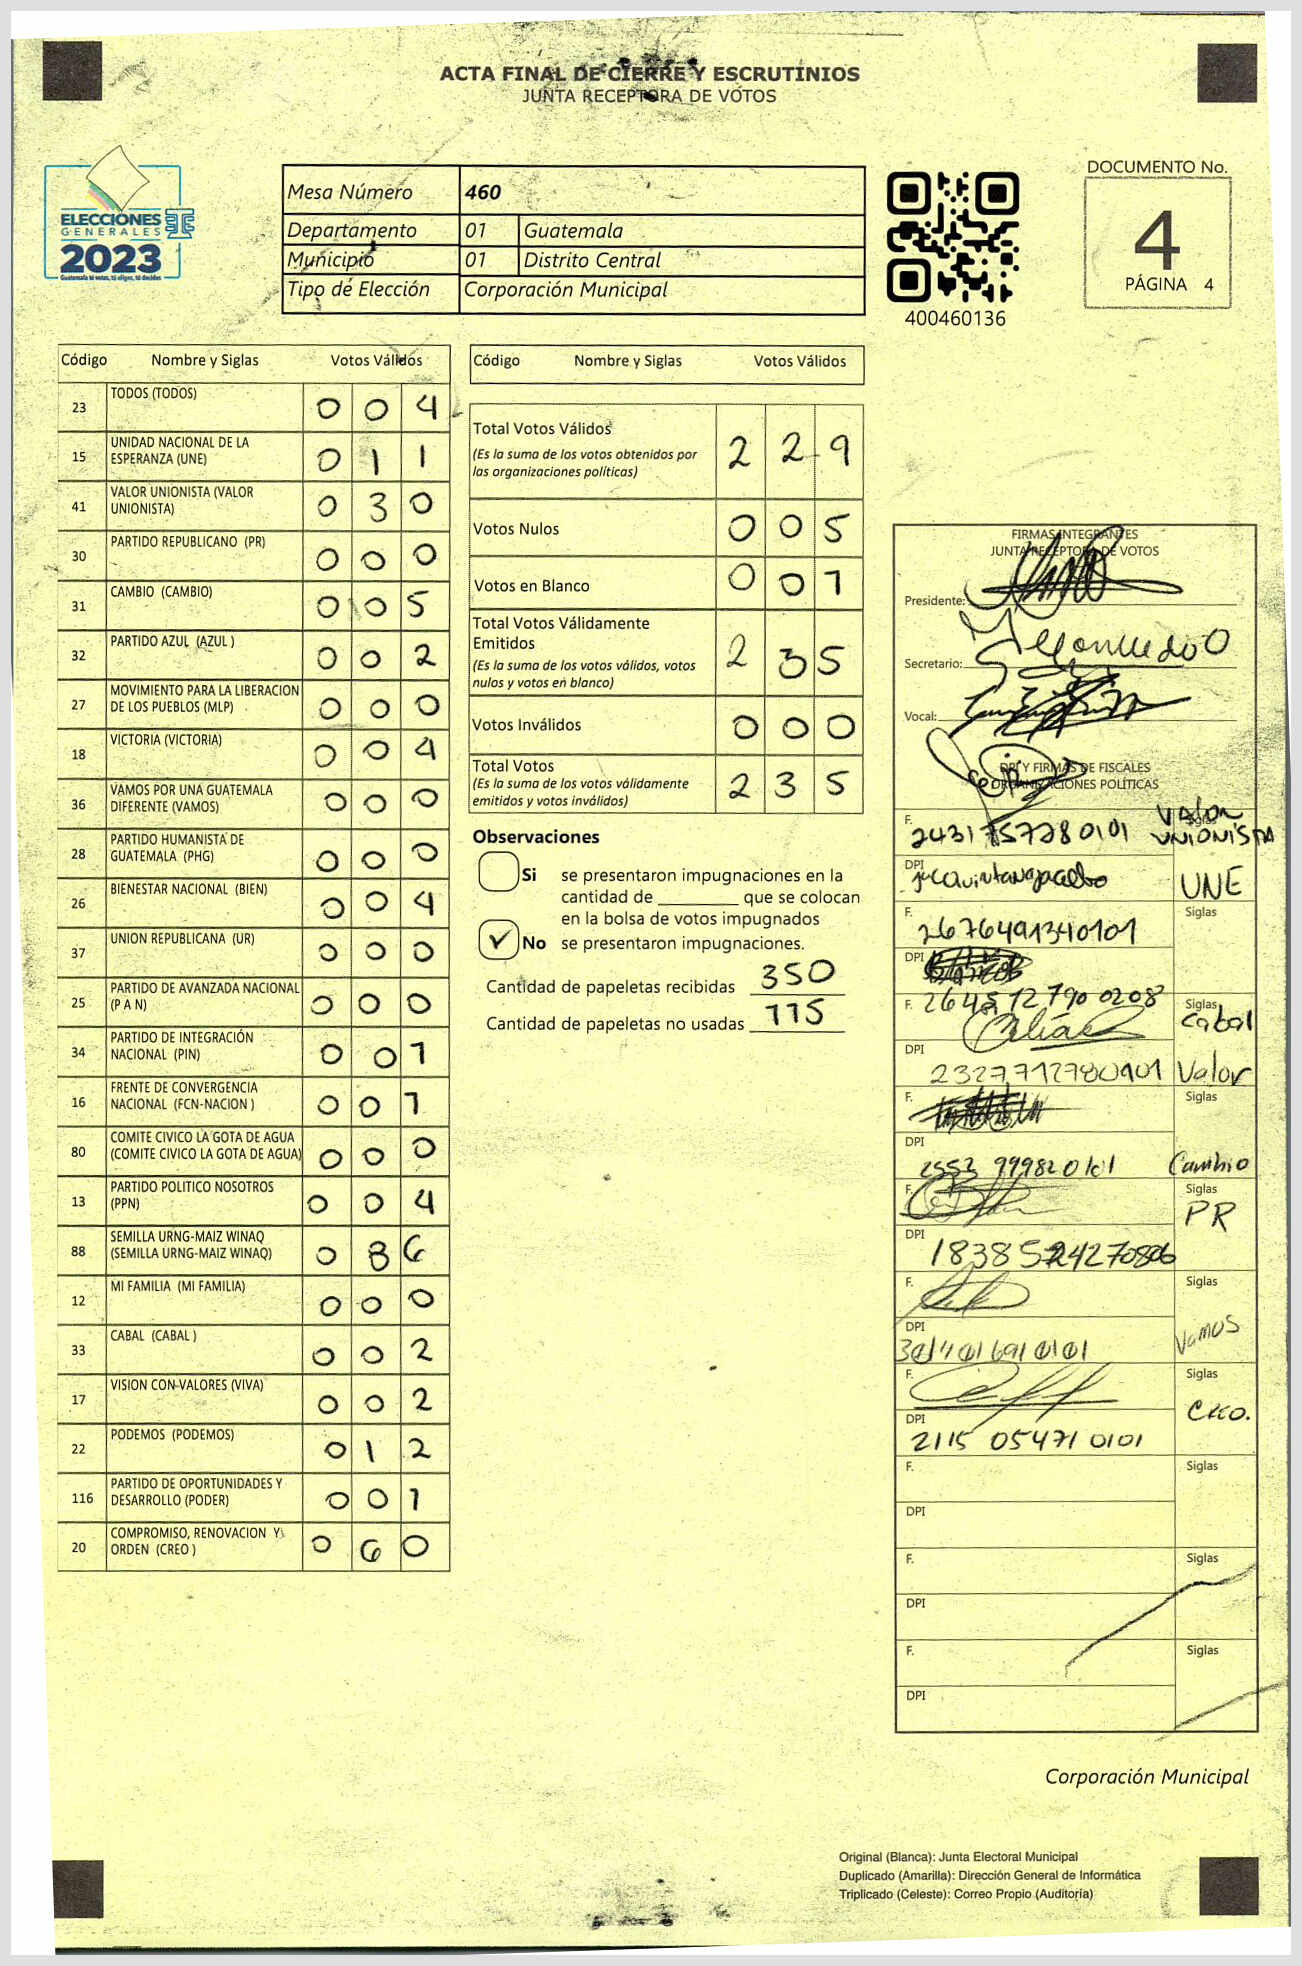 ACTA FINAL DE CIERRE Y ESCRUTINIOS
JUNTA RECEPTORA DE VOTOS
ELECCIONES
GENERALES
2023
Guatemala tú votas, tú eliges, tú decides
Mesa Número 460
Departamento 01 Guatemala
Municipio 01 Distrito Central
Tipo de Elección Corporación Municipal
400460136
DOCUMENTO No.
4
PÁGINA 4
Código Nombre y Siglas Votos Válidos
23 TODOS (TODOS) 0 0 4
15 UNIDAD NACIONAL DE LA ESPERANZA (UNE) 0 1 1
41 VALOR UNIONISTA (VALOR UNIONISTA) 0 3 0
30 PARTIDO REPUBLICANO (PR) 0 0 0
31 CAMBIO (CAMBIO) 0 0 5
32 PARTIDO AZUL (AZUL ) 0 0 2
27 MOVIMIENTO PARA LA LIBERACION DE LOS PUEBLOS (MLP) 0 0 0
18 VICTORIA (VICTORIA) 0 0 4
36 VAMOS POR UNA GUATEMALA DIFERENTE (VAMOS) 0 0 0
28 PARTIDO HUMANISTA DE GUATEMALA (PHG) 0 0 0
26 BIENESTAR NACIONAL (BIEN) 0 0 4
37 UNION REPUBLICANA (UR) 0 0 0
25 PARTIDO DE AVANZADA NACIONAL (P A N) 0 0 0
34 PARTIDO DE INTEGRACIÓN NACIONAL (PIN) 0 0 1
16 FRENTE DE CONVERGENCIA NACIONAL (FCN-NACION ) 0 0 1
80 COMITE CIVICO LA GOTA DE AGUA (COMITE CIVICO LA GOTA DE AGUA) 0 0 0
13 PARTIDO POLITICO NOSOTROS (PPN) 0 0 4
88 SEMILLA URNG-MAIZ WINAQ (SEMILLA URNG-MAIZ WINAQ) 0 8 6
12 MI FAMILIA (MI FAMILIA) 0 0 0
33 CABAL (CABAL ) 0 0 2
17 VISION CON VALORES (VIVA) 0 0 2
22 PODEMOS (PODEMOS) 0 1 2
116 PARTIDO DE OPORTUNIDADES Y DESARROLLO (PODER) 0 0 1
20 COMPROMISO, RENOVACION Y ORDEN (CREO ) 0 6 0
Código Nombre y Siglas Votos Válidos
Total Votos Válidos 2 2 9
(Es la suma de los votos obtenidos por
las organizaciones políticas)
Votos Nulos 0 0 5
Votos en Blanco 0 0 1
Total Votos Válidamente
Emitidos 2 3 5
(Es la suma de los votos válidos, votos
nulos y votos en blanco)
Votos Inválidos 0 0 0
Total Votos 2 3 5
(Es la suma de los votos válidamente
emitidos y votos inválidos)
Observaciones
Si se presentaron impugnaciones en la
cantidad de ________ que se colocan
en la bolsa de votos impugnados
✓ No se presentaron impugnaciones.
Cantidad de papeletas recibidas 350
Cantidad de papeletas no usadas 115
FIRMAS INTEGRANTES
JUNTA RECEPTORA DE VOTOS
Presidente:
Secretario:
Vocal:
DPI Y FIRMAS DE FISCALES
ORGANIZACIONES POLÍTICAS
F. 2431757280101 Siglas Valor UNIONISTA
DPI UNE
F. 2676491340101 Siglas
DPI
F. 2645127900208 Siglas Cabal
DPI 2327712780101 Valor
F. Siglas
DPI 2553 999820101 Cambio
F. Siglas PR
DPI 1838524270806
F. Siglas
DPI 3014016910101 Vamos
F. Siglas CREO.
DPI 2115 05471 0101
F. Siglas
DPI
F. Siglas
DPI
F. Siglas
DPI
Corporación Municipal
Original (Blanca): Junta Electoral Municipal
Duplicado (Amarilla): Dirección General de Informática
Triplicado (Celeste): Correo Propio (Auditoría)